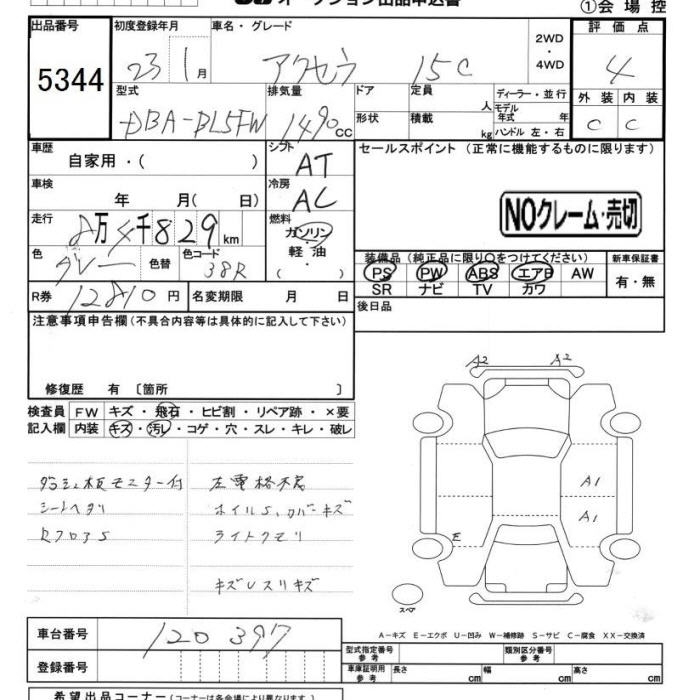 ①会場控
出品番号 初度登録年月 車名・グレード 評価点
5344 23 1月 アクセラ 15C 2WD・4WD 4
型式 排気量 ドア 定員 人 ディーラー・並行 外装 内装
DBA-BL5FW 1490cc 形状 積載 kg モデル年式 年 ハンドル 左・右 C C
車歴 自家用・( ) シフト AT セールスポイント (正常に機能するものに限ります)
車検 年 月( 日) 冷房 AC
NOクレーム・売切
走行 8万4千829km 燃料 ガソリン・軽油 ( )
色 グレー 色替 色コード 38R
装備品 (純正品に限り○をつけてください) 新車保証書
PS PW ABS エアB AW 有・無
SR ナビ TV カワ
R券 12810円 名変期限 月 日 後日品
注意事項申告欄(不具合内容等は具体的に記入して下さい)
修復歴 有 〔箇所 〕
検査員 FW キズ・飛石・ヒビ割・リペア跡・×要
記入欄 内装 キズ・汚レ・コゲ・穴・スレ・キレ・破レ
A2 A2
モニター付 左電格不良
シートヘタリ ホイルS、カバーキズ
ライトクモリ
キズUスリキズ
A1
A1
E
スペア
A-キズ E-エクボ U-凹み W-補修跡 S-サビ C-腐食 XX-交換済
車台番号 120397
登録番号
型式指定番号 参考 類別区分番号 参考
車庫証明用 参考 長さ cm 幅 cm 高さ cm
希望出品コーナー(コーナーは各会場により異なります)